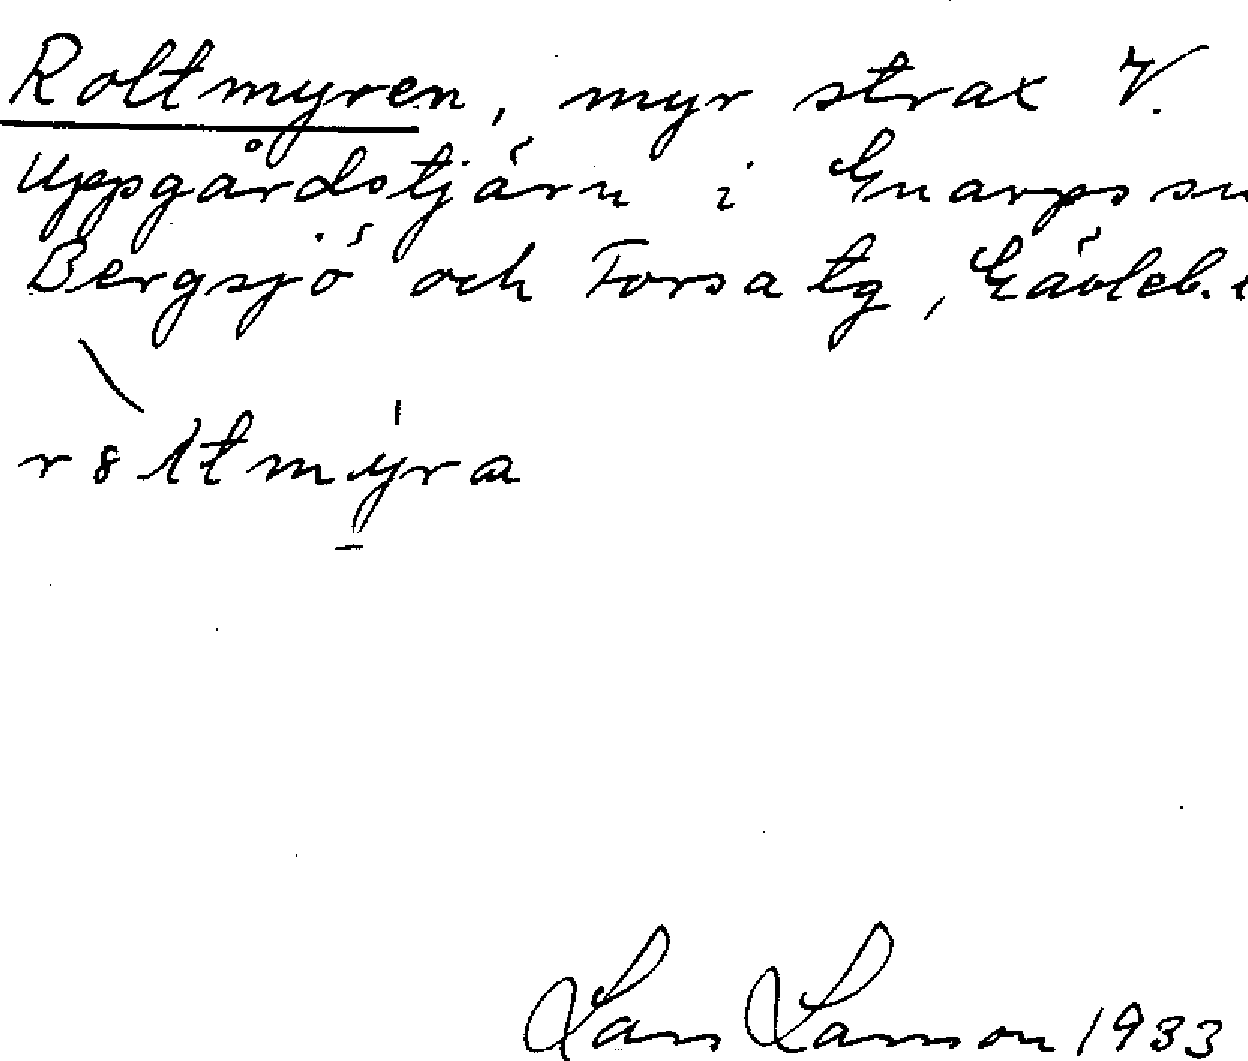 Roltmyren, myr strax V.
Uppgårdstjärn i Gnarps sn
Bergsjö och Forsa tg, Gävleb.
r8ltmýra
Lars Larsson 1933